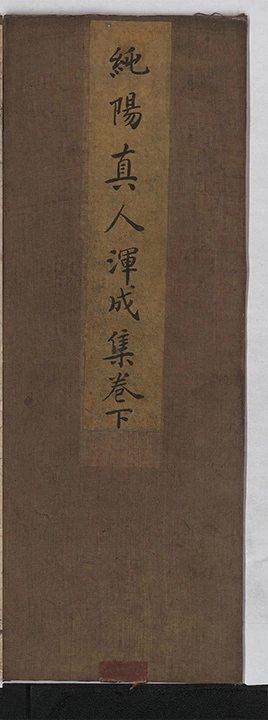 純陽真人渾成集卷下